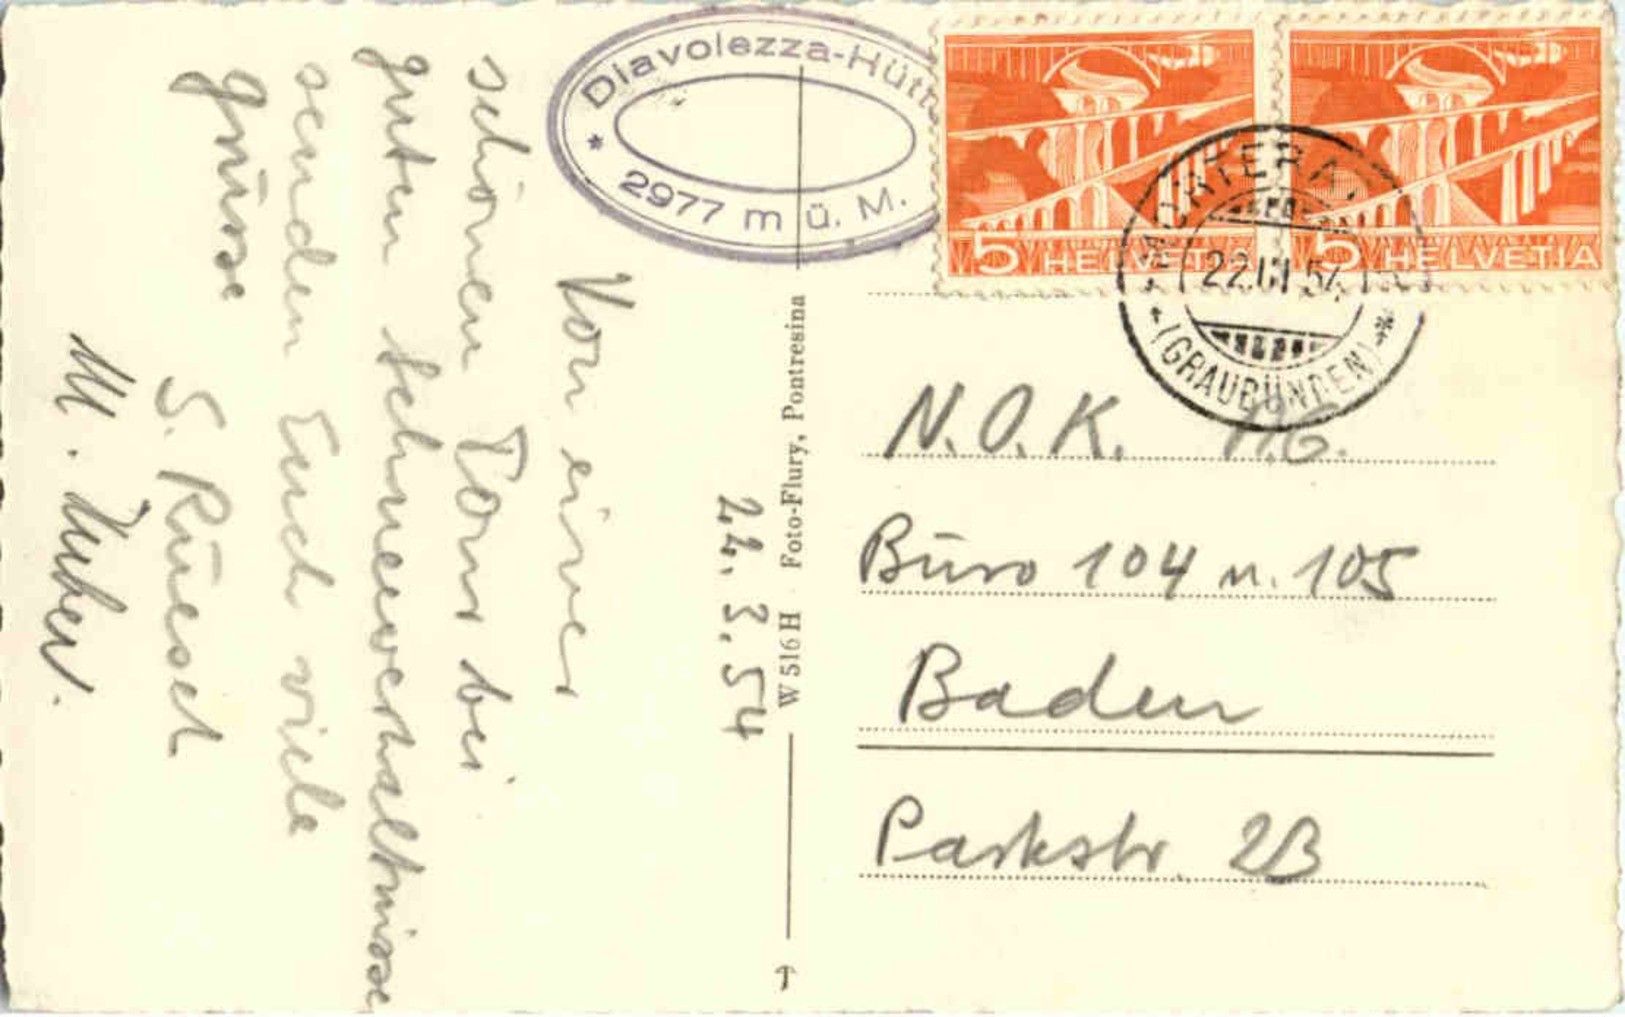 Diavolezza-Hütt
* 2977 m ü. M.
5 HELVETIA
5 HELVETIA
MORTERAT
22.III.54
(GRAUBÜNDEN)
22.3.54
Von einer
schönen Tour bei
guten Schneeverhältnisse
senden Euch viele
Grüsse
S. Rüesch
M. Huber.
W 516 H Foto-Flury, Pontresina
N.O.K. AG.
Büro 104 u. 105
Baden
Parkstr. 2B